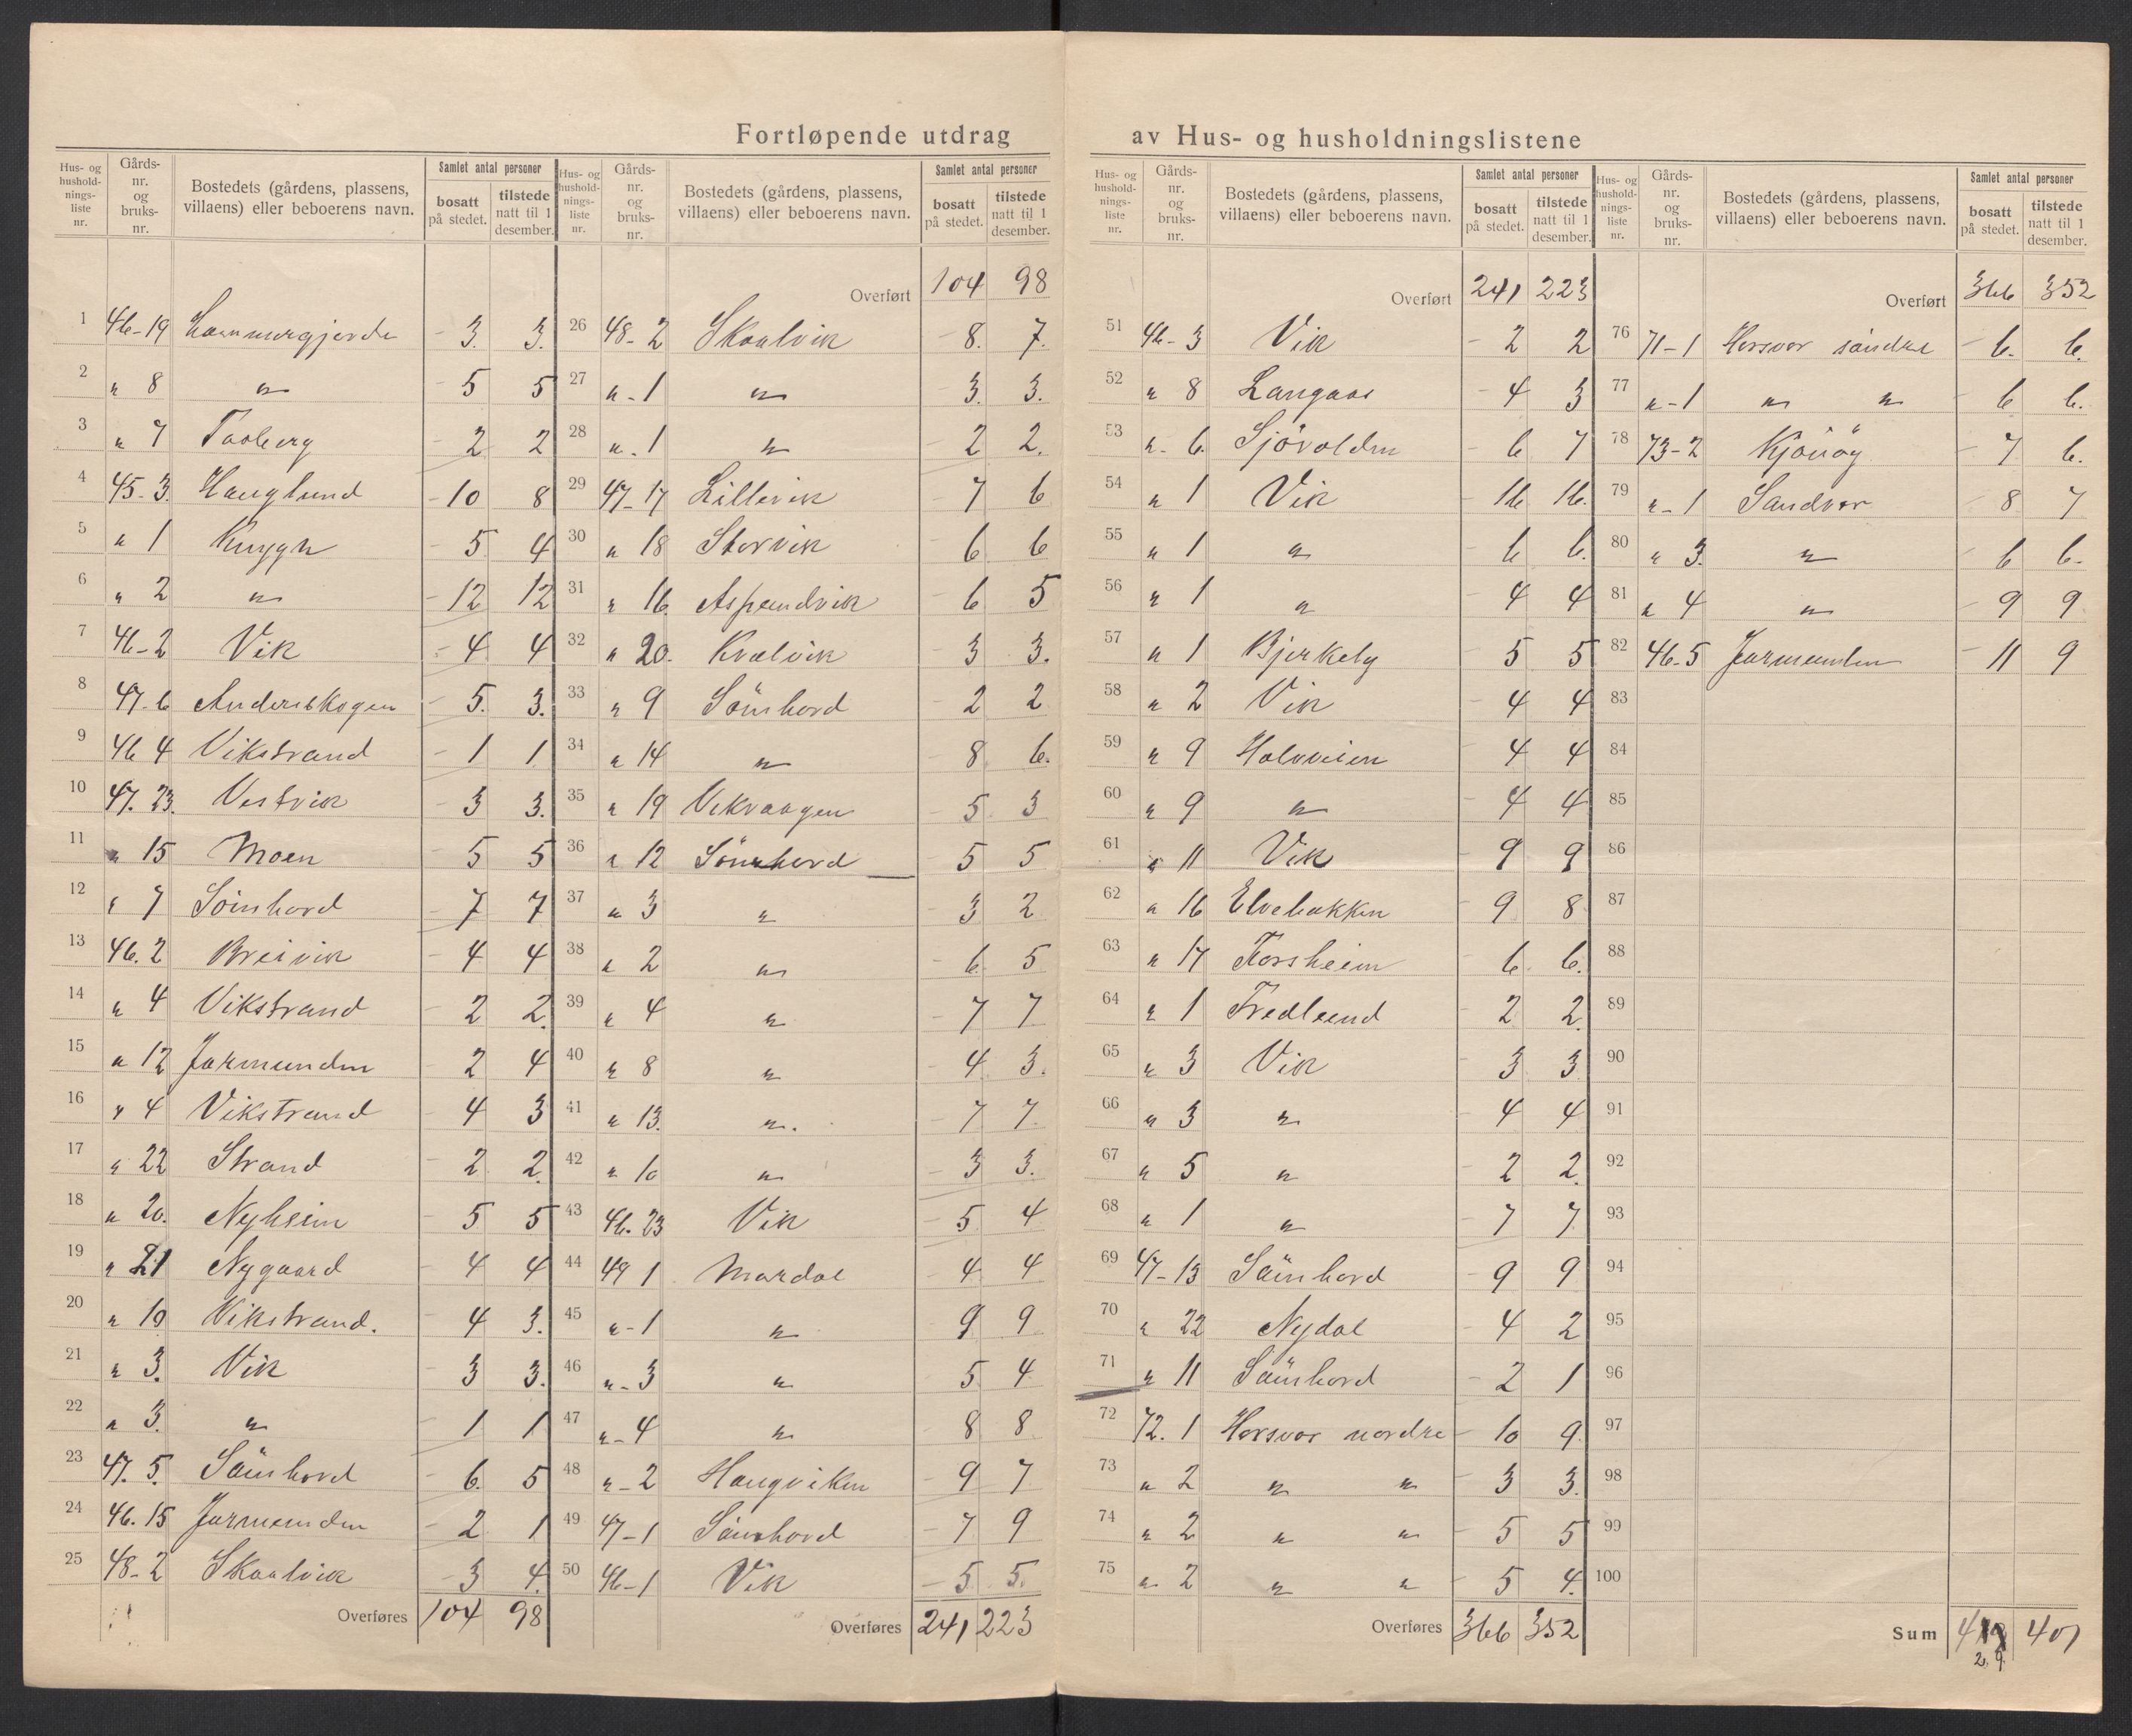 Fortløpende utdrag av Hus- og husholdningslistene
Hus- og hushold-nings-liste nr. Gårds-nr. og bruks-nr. Bostedets (gårdens, plassens, villaens) eller beboerens navn. Samlet antal personer bosatt på stedet. tilstede natt til 1 desember.
1 46-19 Lammergjerde 3. 3.
2 " 8 " 5 5
3 " 7 Taaberg 2 2
4 45-3. Hauglund 10 8
5 " 1 Knygh 5 4
6 " 2 " 12 12
7 46-2 Vik 4 4
8 47-6 Anderskogen 5. 3.
9 46 4 Vikstrand 1 1
10 47. 23. Vestvik 3 3.
11 " 15 Moen 5 5
12 " 7 Sömhovd 7 7
13 46. 2 Breivik 4 4
14 " 4 Vikstrand 2 2.
15 " 12 Jarmunden 2 4
16 " 4 Vikstrand 4 3
17 " 22 Strand 2 2.
18 " 20. Nyheim 5 5
19 " 21 Nygaard 4 4
20 " 19 Vikstrand. 4 3.
21 " 3. Vik 3 3.
22 " 3. " 1 1
23 47. 5. Sömhovd 6. 5
24 46. 15 Jarmunden 2 1
25 48-2 Skaalvik 3 4.
Overføres 104 98
Hus- og hushold-nings-liste nr. Gårds-nr. og bruks-nr. Bostedets (gårdens, plassens, villaens) eller beboerens navn. Samlet antal personer bosatt på stedet. tilstede natt til 1 desember.
Overført 104 98
26 48-2 Skaalvik 8. 7.
27 "-1 " 3. 3.
28 ".1 " 2 2.
29 47-17 Lillevik 7 6
30 " 18 Storvik 6 6
31 " 16. Aspundvik 6 5
32 " 20. Kvalvik 3 3.
33 " 9 Sömhovd 2 2
34 " 14 " 8 6.
35 " 19 Vikvaagen 5 3
36 " 12 Sömhovd 5 5
37 " 3 " 3 2
38 " 2 " 6. 5
39 " 4 " 7 7
40 " 8 " 4 3.
41 " 13. ". 7 7
42 " 10 " 3 3.
43 46. 23 Vik 5 4
44 49 1 Mardal 4 4
45 "-1 " 9 9
46 "-3 " 5 4
47 "-4 " 8 8
48 "-2 Haugviken 9 7
49 47-1 Sömhovd 7 9
50 46-1 Vik 5 5.
Overføres 241 223
Hus- og hushold-nings-liste nr. Gårds-nr. og bruks-nr. Bostedets (gårdens, plassens, villaens) eller beboerens navn. Samlet antal personer bosatt på stedet. tilstede natt til 1 desember.
Overført 241 223
51 46-3 Vik 2 2
52 " 8 Langaas 4 3
53 "-6. Sjövolden 6 7
54 " 1 Vik 16 16.
55 " 1 " 6 6.
56 " 1 " 4 4
57 " 1 Bjerkely 5 5
58 " 2 Vik 4 4
59 " 9 Holoveien 4 4
60 " 9 " 4 4
61 " 11 Vik 9 9
62 " 16 Elvebakken 9 8
63 " 17 Forsheim 6 6.
64 " 1 Fredlund 2 2.
65 " 3 Vik 3 3
66 " 3 " 4 4
67 " 5 " 2 2.
68 " 1 " 7 7
69 47-13 Sömhovd 9 9
70 " 22 Nydal 4 2
71 " 11 Sömhovd 2 1
72 72. 1 Horsvær nordre 10 9
73 " 2 " " 3 3.
74 " 2 " " 5 5
75 " 2 " " 5 4.
Overføres 366 352
Hus- og hushold-nings-liste nr. Gårds-nr. og bruks-nr. Bostedets (gårdens, plassens, villaens) eller beboerens navn. Samlet antal personer bosatt på stedet. tilstede natt til 1 desember.
Overført 366 352
76 71-1 Horsvær söndre 6. 6.
77 "-1 " " 6 6.
78 73-2 Kjönöy 7 6.
79 "-1 Sandvær 8 7
80 " 3. " 6 6.
81 " 4 " 9 9
82 46-5 Jarmunden 11 9
83
84
85
86
87
88
89
90
91
92
93
94
95
96
97
98
99
100
Sum 401
2. 9.